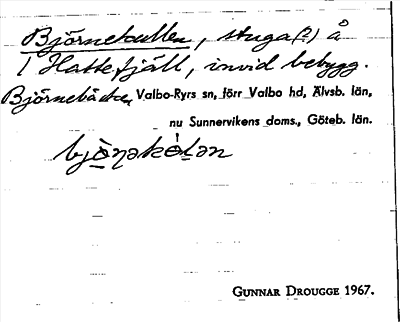 Björnekullen, stuga(?) å
1 Hattefjäll, invid bebygg.
Björnebäcken, Valbo-Ryrs sn, förr Valbo hd, Älvsb. län,
nu Sunnervikens doms., Göteb. län.
bjò̱ŋəkó̱lən
GUNNAR DROUGGE 1967.